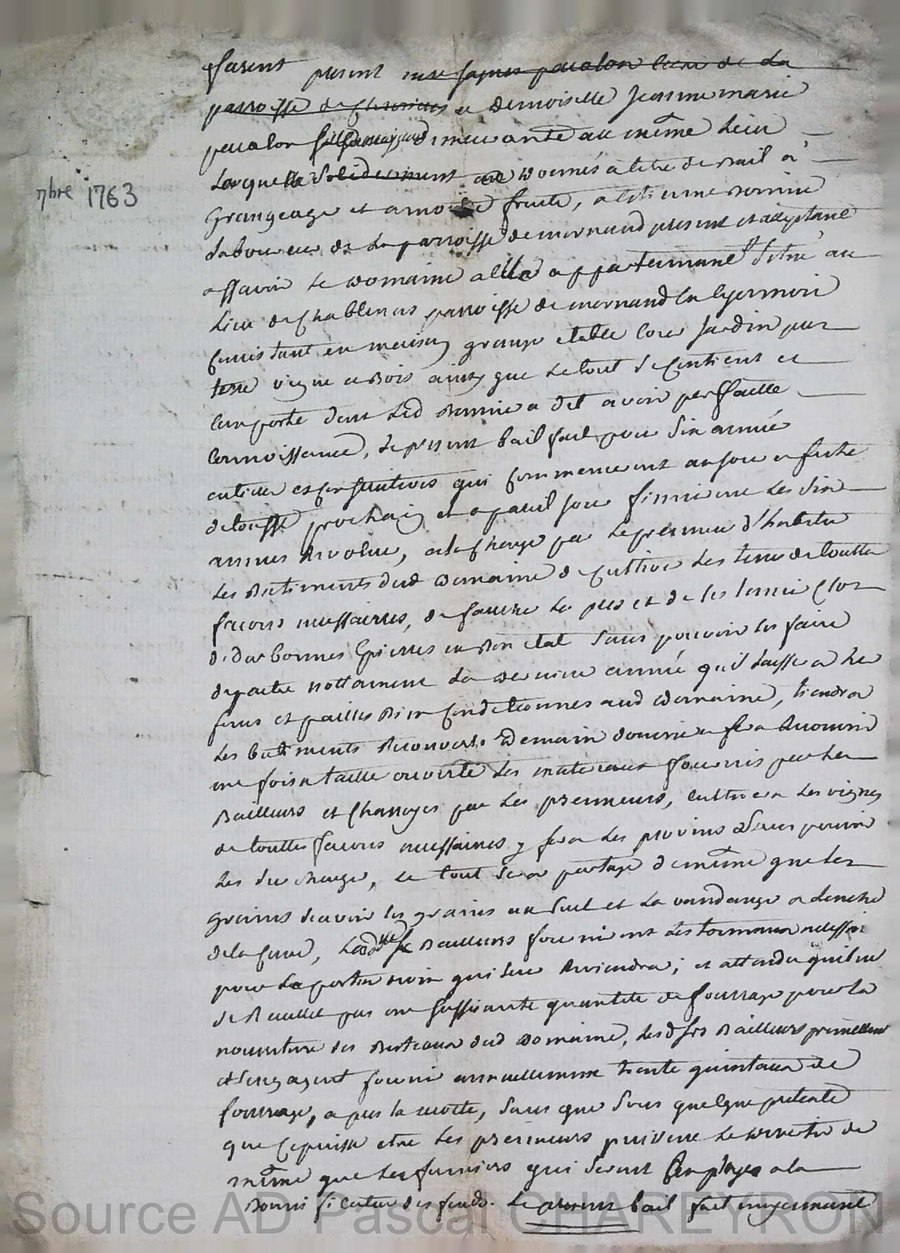 furent present
parroisse de et Demoiselle Jeanne marie
peualon demeurante au même Lieu
Laquelle Solidairement ont Donnés a titre de Bail à
9bre 1763
Grangeage et a moitié fruits, a etienne Bonnire
Laboureur de la parroisse de mornand present et acceptant
assavoir Le Domaine a elle appartenant Situé au
Lieu de Chablenas parroisse de mornand en lyonnois
Consistant en maison grange etable Cour Jardin pres
terre vigne et Bois ainsy que Le tout Se Contient et
Comporte dont Led a dit avoir perffaitte
Connoissance, Le present bail fait pour Six année
entiere et Consecutives qui Commenceront au jour et feste
de tousst prochain et a pareil jour finiront Les Six
années Revolue, a la Charge par Le preneur d'habiter
Les Batiments dud Domaine de Cultiver Les terre de toutte
façons nessaires, de faucher Les pres et de les tenir Clor
de bonnes en Bon etat Sans pouvoir les faire
notament La derniere année qu'il Laissera Les
foins et pailles Bien Conditionnes aud Domaine, tiendra
Les batiments Recouvert Demain douvrier
une fois a taille ouverte Les materiaux fournis par Les
Bailleurs et Charroyes par Les preneurs, Cultivera Les vignes
de touttes façons nessaires y fera Les provins Sans pouvoir
Les Sur charger, Le tout Sera partagé de même que Les
grains Scavoir les grains au Suel et La vandange
de la Cuve, Bailleurs fourniront Les tonneaux nessair
pour La portion du vin qui Leur Reviendra; et attendu qu'il ne
Se Recullet pas une Suffisante quantité de fourrage pour La
nourriture des Bestiaux dud Domaine, Les Bailleurs promettent
et Sengagent fournir annuellement trente quintaux de
fourrage, apres la recolte, Sans que Sous quelque pretexte
que Ce puisse etre Les preneurs puissent Le divertir de
même que Les fumiers qui Seront Employes a la
Bonnification des fonds. Le present bail fait moyennant
Source AD Pascal CHAREYRON